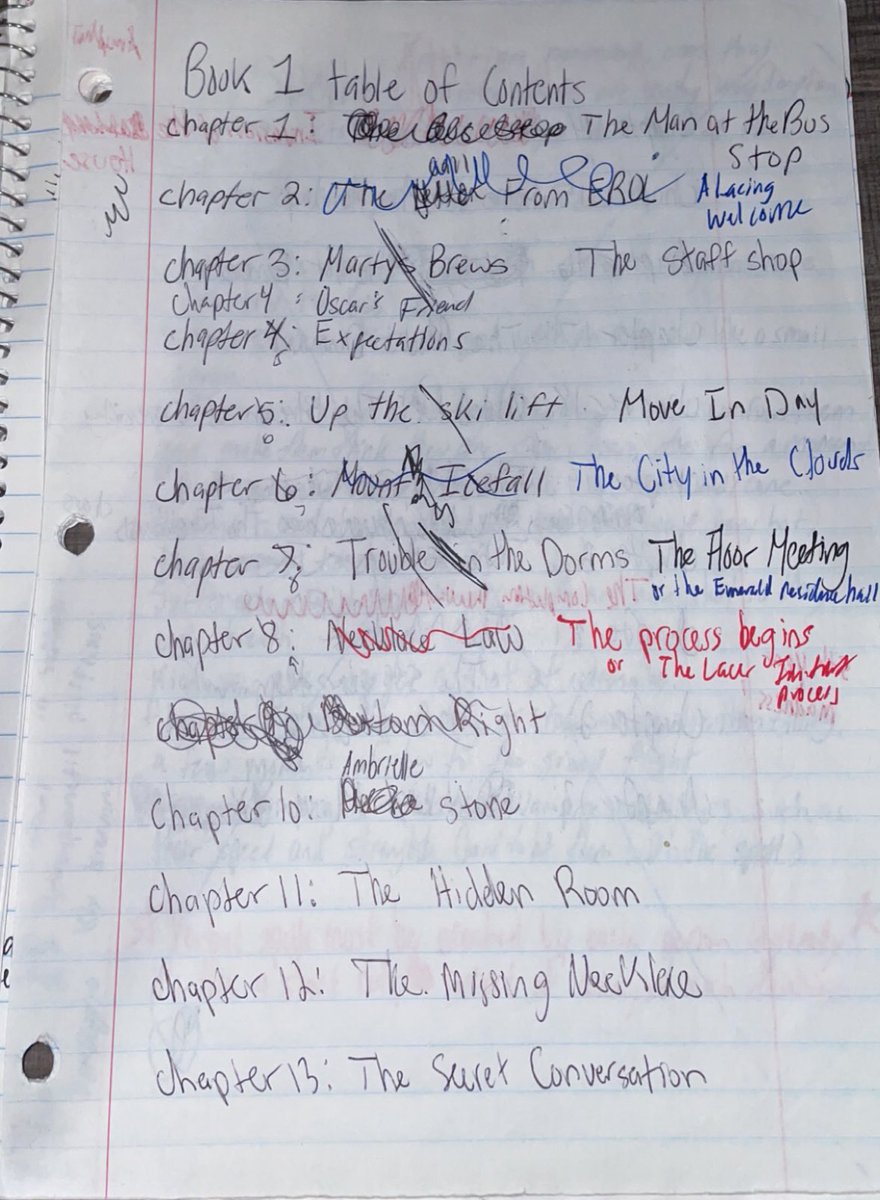 Book 1 table of Contents
chapter 1: The Man at the Bus
Stop
chapter 2: The From A Lacing
Welcome
chapter 3: Marty's Brews The Staff shop
Chapter 4: Oscar's Friend
chapter 5: Expectations
chapter 6: Up the ski lift Move In Day
chapter 7: Mount Icefall The City in the Clouds
chapter 8: Trouble in the Dorms The Floor Meeting
or the Emerald residence hall
chapter 9: Necklace Law The process begins
or The Lacer
process
Right
Ambrielle
Chapter 10: stone
chapter 11: The Hidden Room
chapter 12: The Missing Necklace
chapter 13: The Secret Conversation